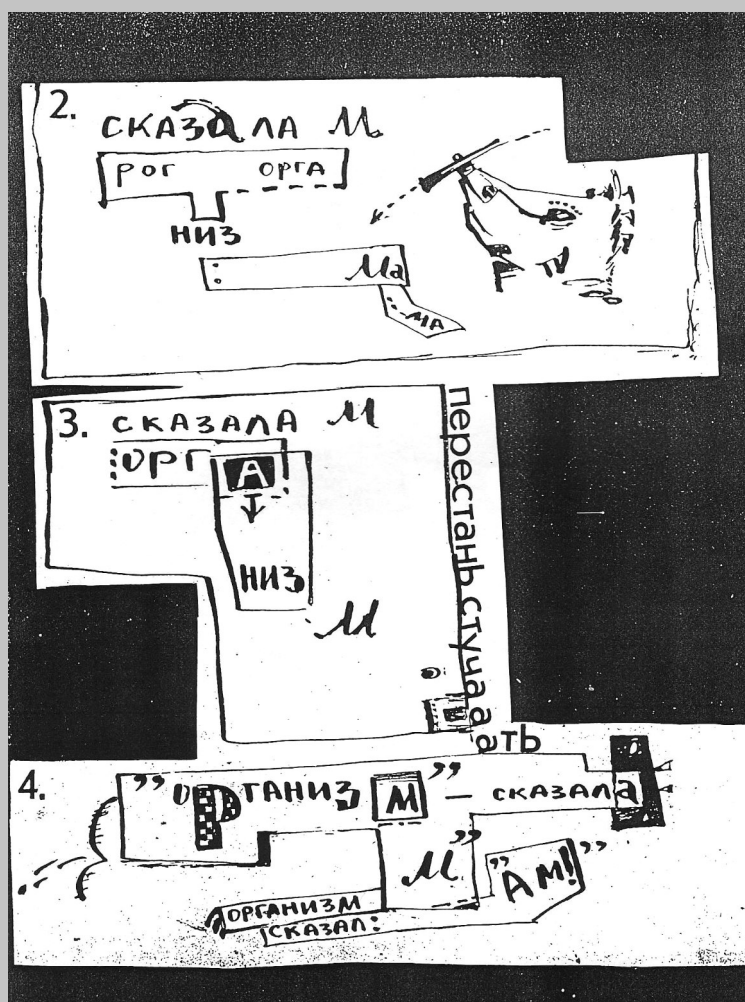 2.
СКАЗАЛА М
РОГ ОРГА
НИЗ
Ма
МА
3. СКАЗАЛА М
ОРГ А
НИЗ
М
перестань стуча а ать
4. „ОРГАНИЗ М” — СКАЗАЛА
М” „АМ!”
ОРГАНИЗМ
СКАЗАЛ: